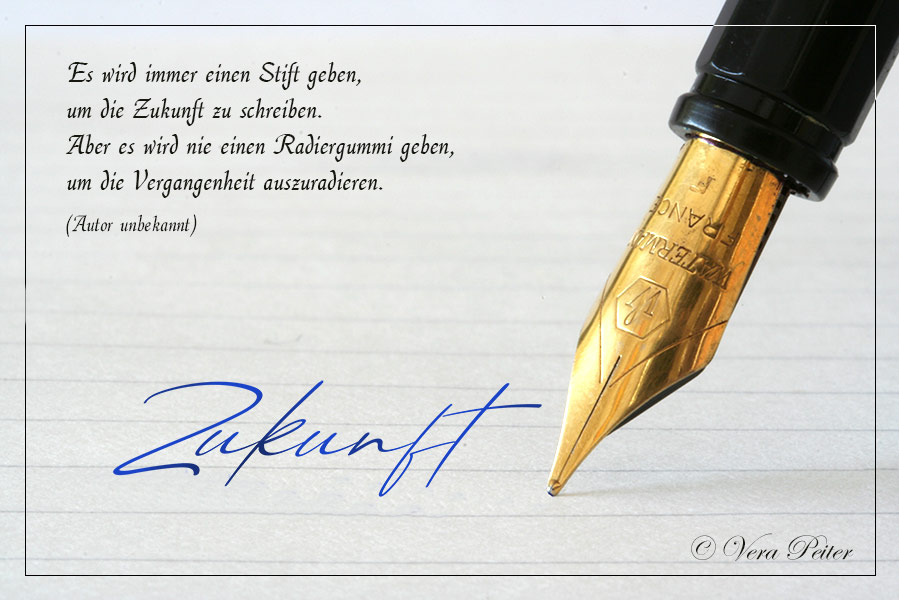 Es wird immer einen Stift geben,
um die Zukunft zu schreiben.
Aber es wird nie einen Radiergummi geben,
um die Vergangenheit auszuradieren.
(Autor unbekannt)
FRANCE
F
Zukunft
© Vera Peiter